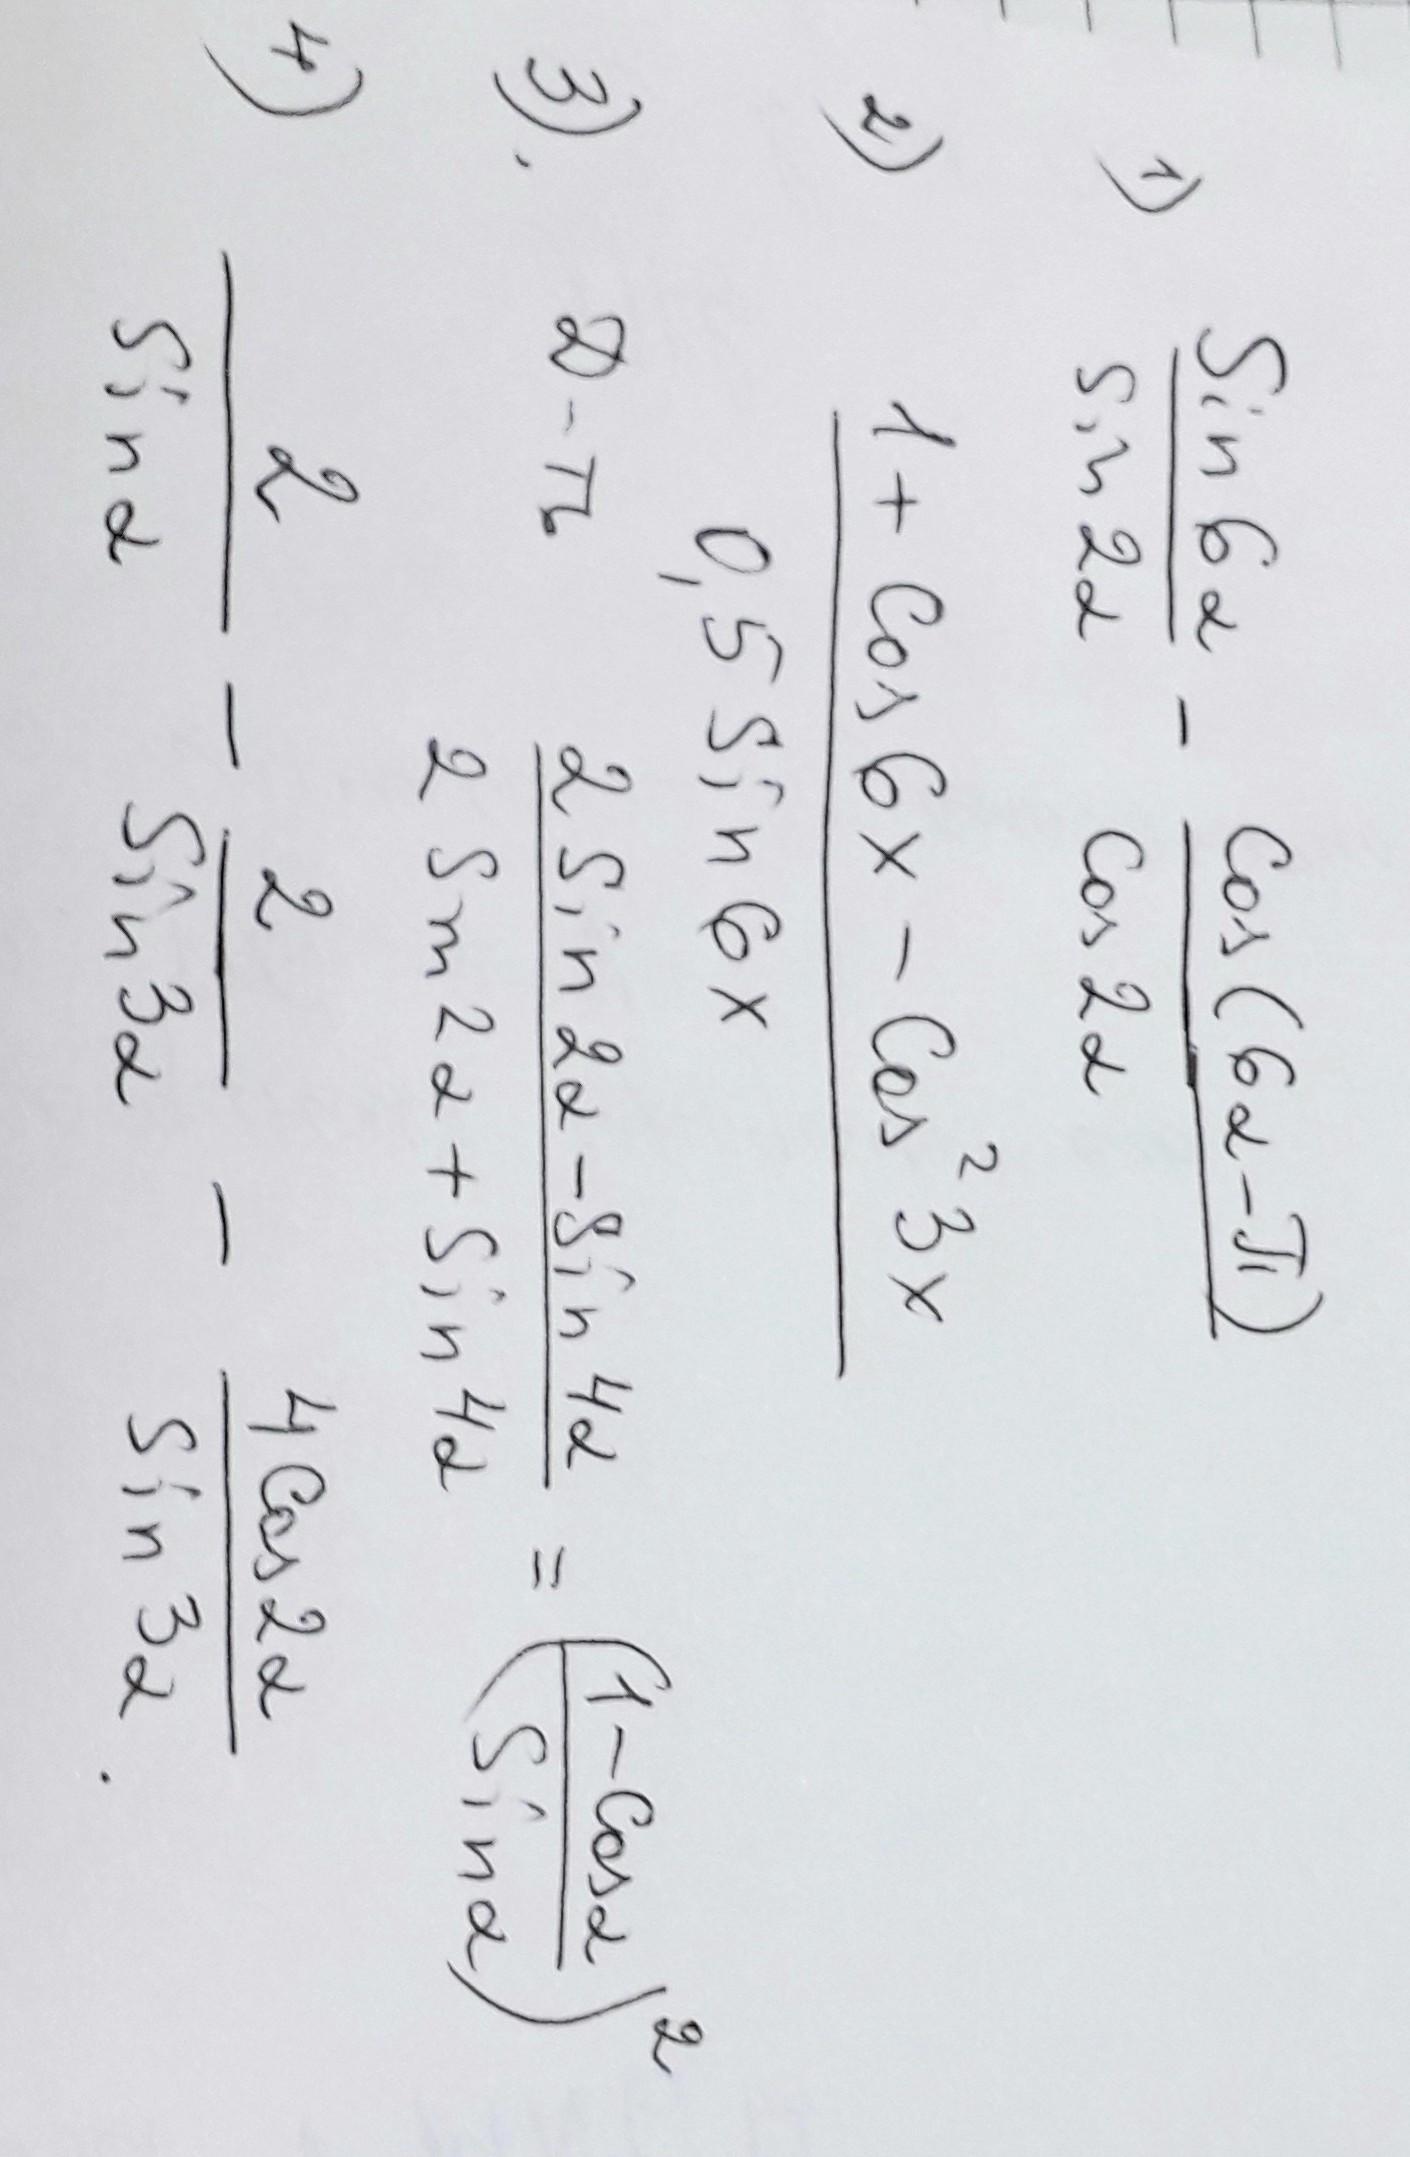 1) Sin6α/Sin2α - Cos(6α-π)/Cos2α
2) (1+Cos6x-Cos²3x)/(0,5Sin6x)
3). Д-ть (2Sin2α-Sin4α)/(2Sin2α+Sin4α) = ((1-Cosα)/Sinα)²
4) 2/Sinα - 2/Sin3α - 4Cos2α/Sin3α.